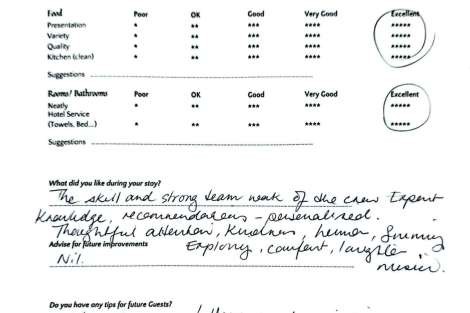 Food Poor OK Good Very Good Excellent
Presentation * ** *** **** *****
Variety * ** *** **** *****
Quality * ** *** **** *****
Kitchen (clean) * ** *** **** *****
Suggestions
Rooms/ Bathrooms Poor OK Good Very Good Excellent
Neatly * ** *** **** *****
Hotel Service
(Towels, Bed...) * ** *** **** *****
Suggestions
What did you like during your stay?
The skill and strong team work of the crew Expert
Knowledge, recommendations - personalised.
Thoughtful attention, Kindness, humor,
Advise for future improvements
Exploring, comfort, laughter,
Nil. music.
Do you have any tips for future Guests?